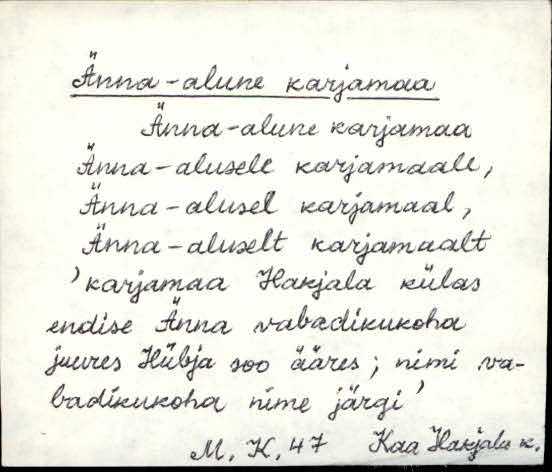 Änna-alune karjamaa
Änna-alune karjamaa
Änna-alusele karjamaale,
Änna-alusel karjamaal,
Änna-aluselt karjamaalt
'karjamaa Hakjala külas
endise Änna vabadikukoha
juures Hübja soo ääres; nimi va-
badikukoha nime järgi'
M. K. 47 Kaa Hakjala k.